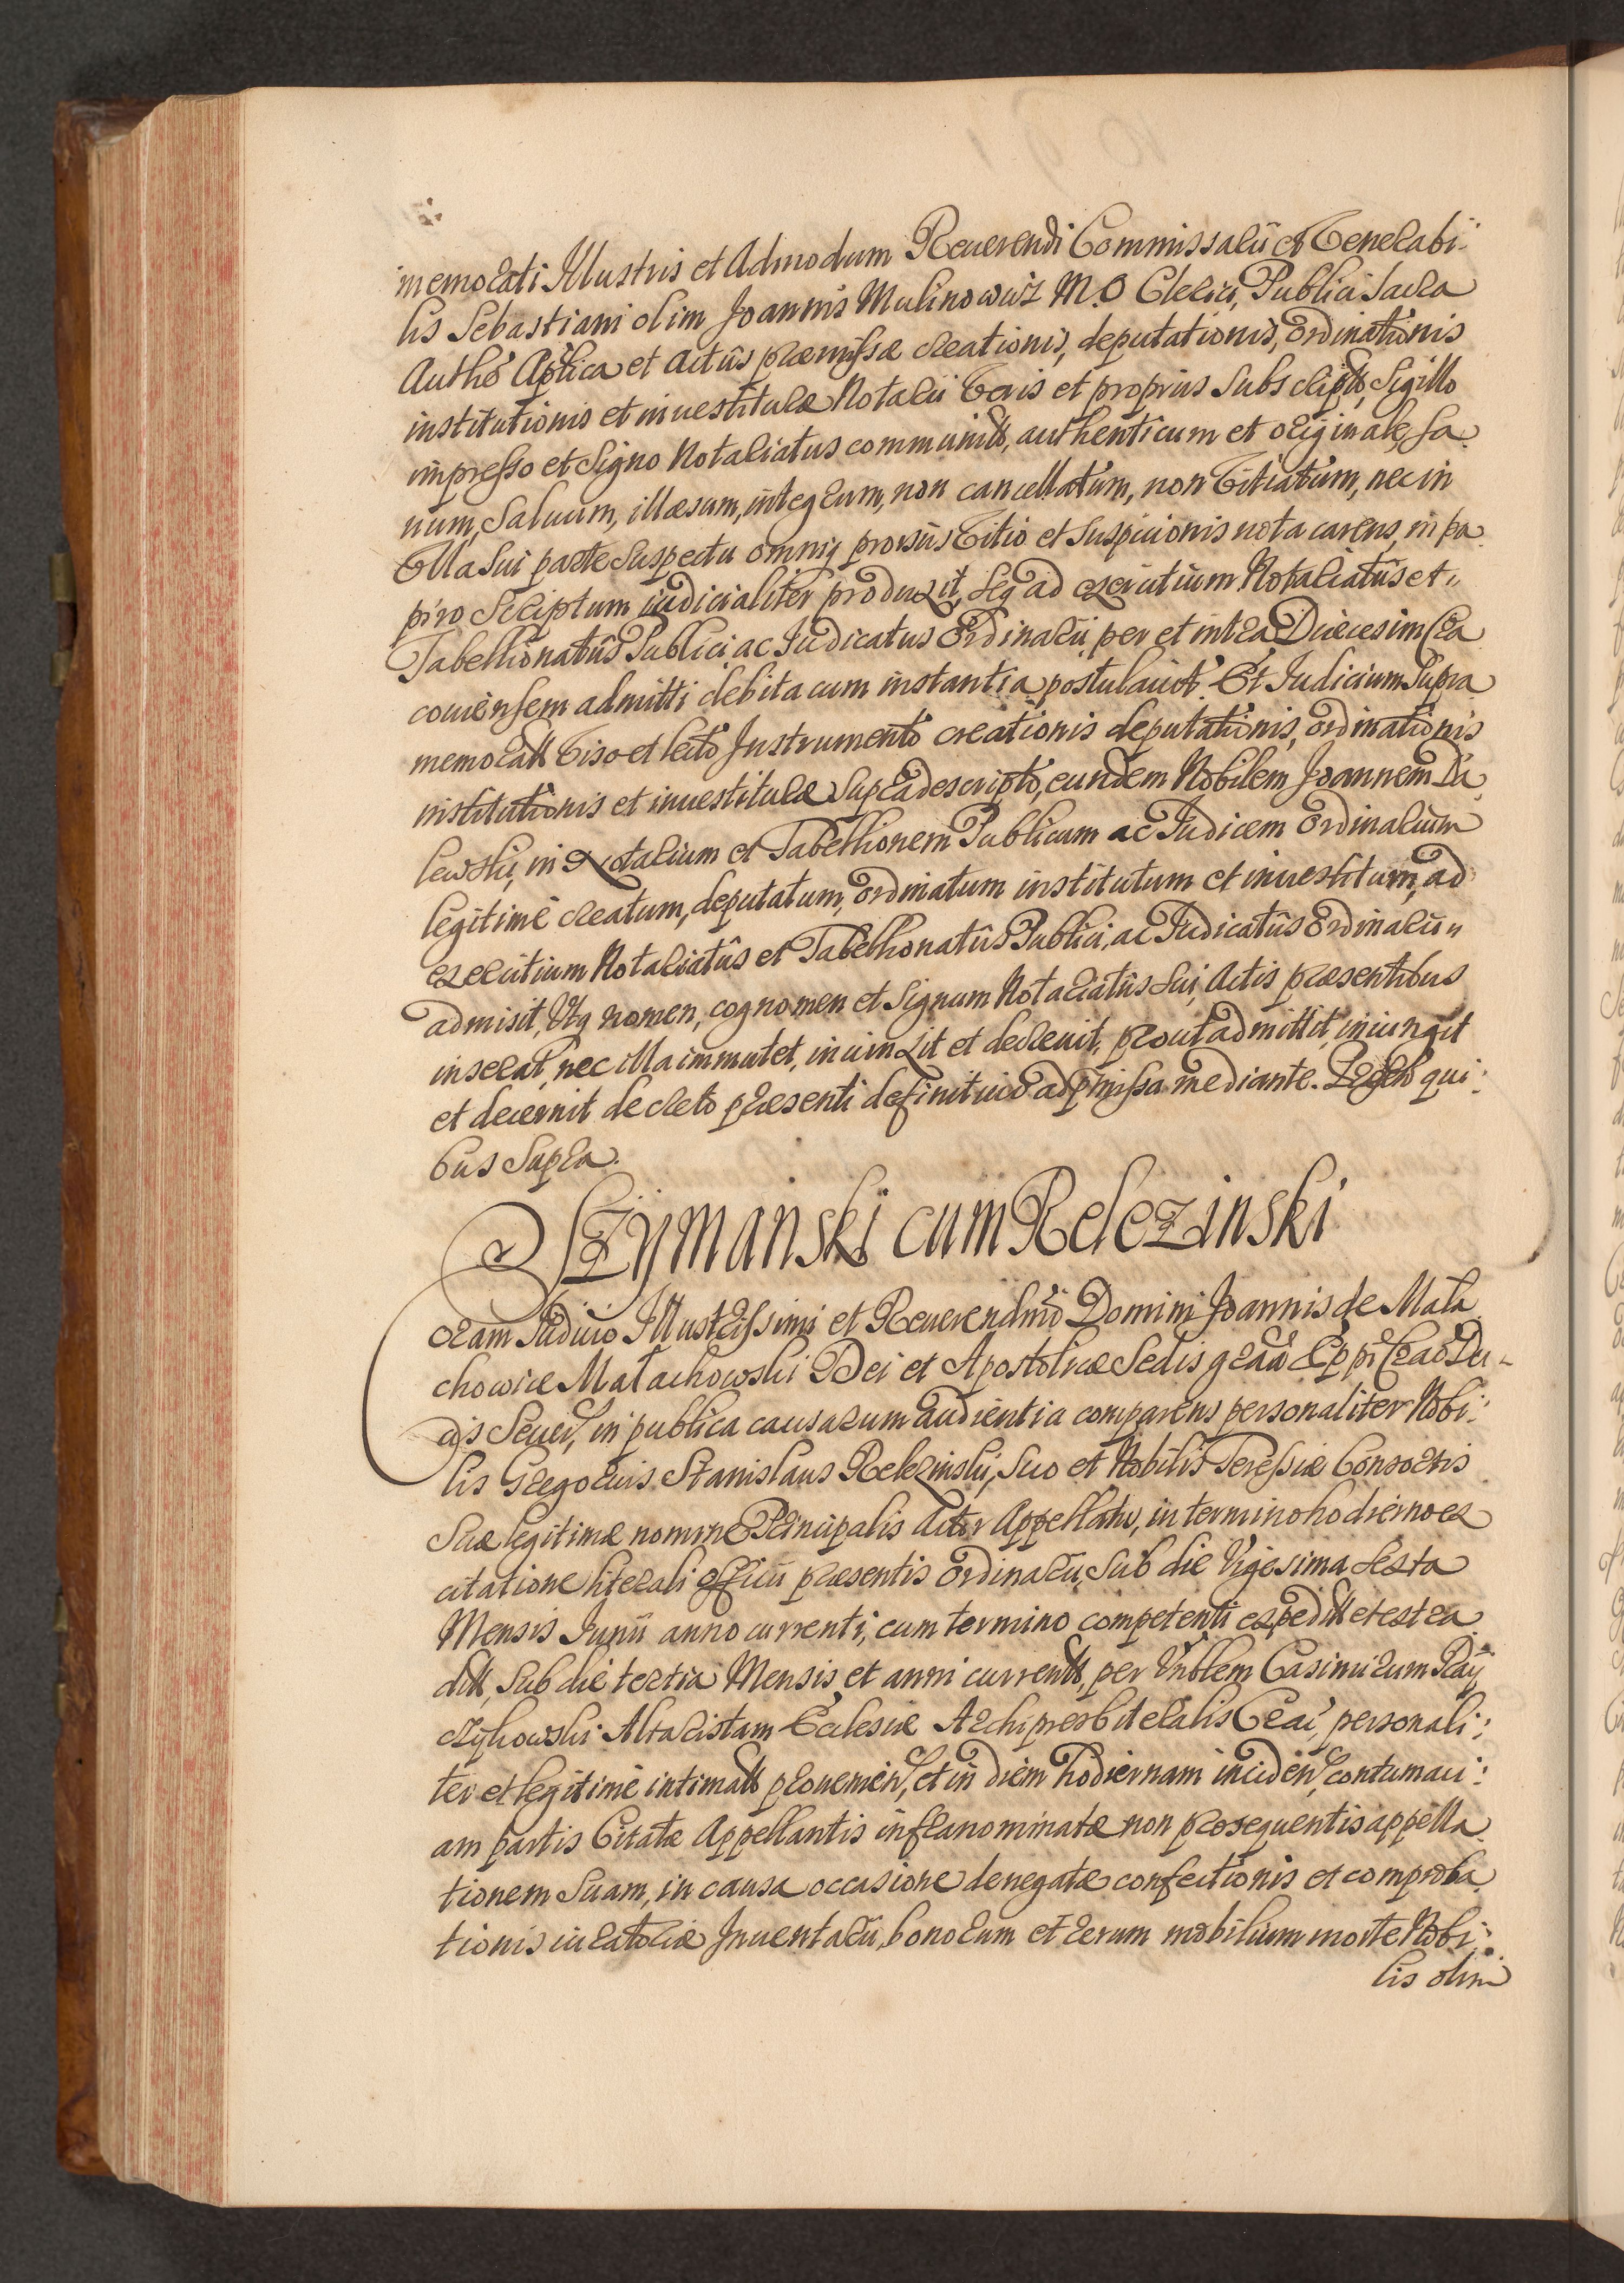 memorati Illustris et Admodum Reuerendi Commissarii et Venerabi:
lis Sebastiani olim Joannis Mulinowicz M. O Clerici, Publici Sacra
Autho Aplica et Actûs præmissæ creationis, deputationis, ordinationis
institutionis et inuestituræ Notarii Veris et proprius subscriptt, Sigillo
impresso et Signo Notariatus communitt, authenticum et originale, sa
num, saluum, illæsum, integrum, non cancellatum, non Vitiatum, nec in
Vlla sui parte suspectu omniq prorsùs Vitio et suspicionis nota carens, in pa
piro scriptum iudicialiter produxit, seq ad exercitium Notariatûs et
Tabellionatûs Publici ac Iudicatus ordinarii per et intra Diæcesim Cra
couiensem admitti debita cum instantia postulauit. Et Iudicium supra
memoratt Viso et lecto Instrumento creationis deputationis, ordinationis
institutionis et inuestituræ supradescripto, eundem Nobilem Joannem Da
lewski, in Notarium et Tabellionem Publicum ac Iudicem ordinarium
legitimè creatum, deputatum, ordinatum institutum et inuestitum, ad
exercitium Notariatûs et Tabellionatûs Publici, ac Iudicatûs ordinarii
admisit, Vtq nomen, cognomen et signum Notariatûs sui, Actis præsentibus
inserat, nec illa immutet, iniunxit et decreuit, prout admittit, iniungit
et decernit decreto præsenti definitiuo ad pmissa mediante. Pntb qui:
bus supra.
Szÿmanski cum Relezinski
Coram Iudicio Illustrissimi et Reuerendmi Domini Joannis de Mała
chowice Małachowski Dei et Apostolicæ Sedis graã Eppi Crac Du
cis Seuer, in publica causarum audientia comparens personaliter Nobi:
lis Gregorius Stanislaus Relezinski, suo et Nobilis Teressiæ Consortis
suæ legitimæ nomine Principalis Actor Appellatu, in termino hodierno ex
citatione literali officii præsentis ordinarii, sub die Vigesima sexta
Mensis Iunii anno currenti, cum termino competenti expeditt et extra
ditt, sub die tertia Mensis et anni currentt, per Vnblem Casimirum Ray
czykowski Altaristam Ecclesiæ Archipresbiteralis Crac, personali:
ter et legitimè intimatt prouenien, et in diem hodiernam inciden, contumaci:
am partis Citatæ Appellantis infranominatæ non prosequentis appella
tionem suam, in causa occasione denegatæ confectionis et comproba
tionis iuratoriæ Inuentarii, bonorum et rerum mobilium morte Nobi:
lis olim